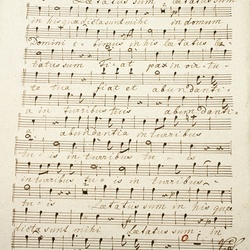 Laetatus sum laetatus sum
in his quae dicta sunt mihi in domum
Domini ibimus in his laetatus lae
tatus sum Fiat pax in virtu-
te tua fiat et abundanti-
a in turribus tuis abundanti-
abundantia in turribus
tu-is in turribus tu-is
in turribus tu-is in turribus
tu-is Laetatus sum in his quae
dicta sunt mihi Laetatus sum in